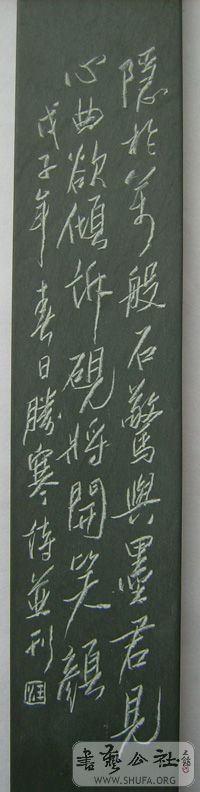 隱於萬般石驚與墨君見
心曲欲傾訴硯將開笑顏
戊子年春日勝寒詩並刊
書藝公社
WWW.SHUFA.ORG